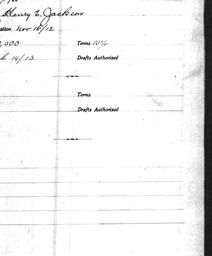 Henry E. Jackson
ation Nov 16/12
,000 Terms 10%
14/13 Drafts Authorized
Terms
Drafts Authorized